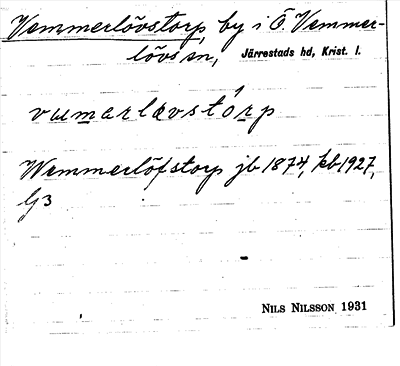 Vemmerlövstorp, by i Ö Vemmer-
lövs sn, Järrestads hd, Krist. l.
Wemmerlöfstorp jb 1874, kb 1927,
G3
NILS NILSSON 1931